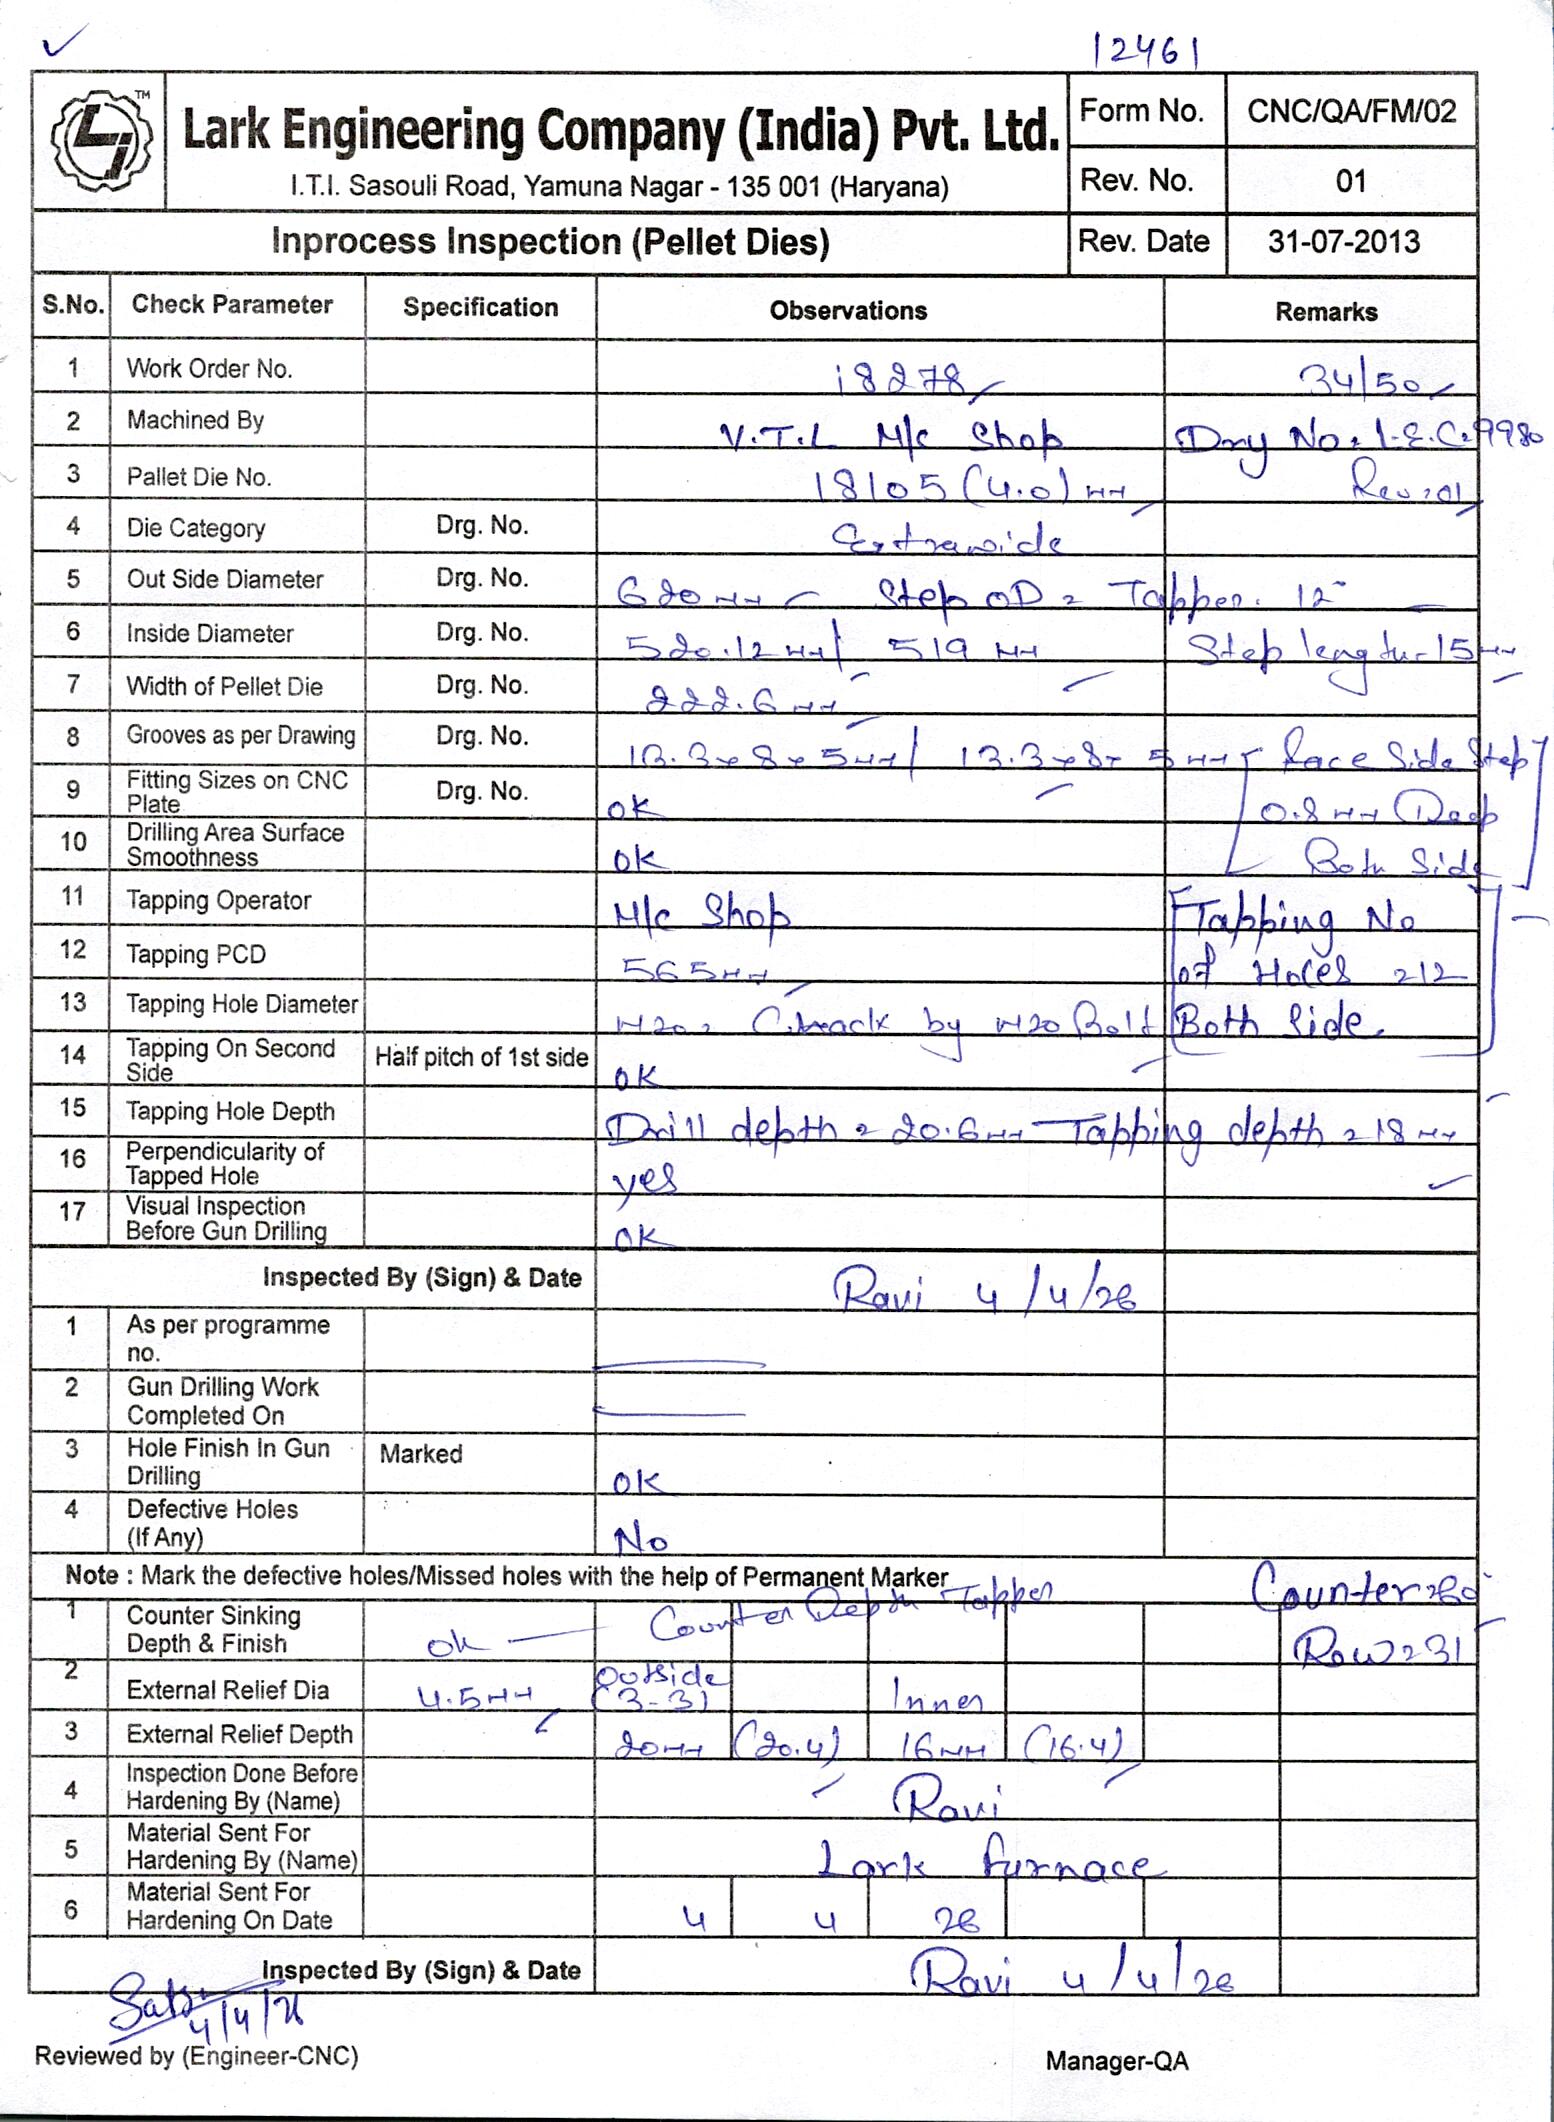 12461
TM
Lark Engineering Company (India) Pvt. Ltd.
I.T.I. Sasouli Road, Yamuna Nagar - 135 001 (Haryana)
Form No. CNC/QA/FM/02
Rev. No. 01
Inprocess Inspection (Pellet Dies) Rev. Date 31-07-2013
S.No. Check Parameter Specification Observations Remarks
1 Work Order No. 18278 34/50
2 Machined By V.T.L M/c Shop Drg No. I.E.C. 9980
3 Pallet Die No. 18105 (4.0) mm Rev: 01
4 Die Category Drg. No. Extrawide
5 Out Side Diameter Drg. No. 620 mm Step OD = Tapper. 12°
6 Inside Diameter Drg. No. 520.12 mm / 519 mm Step length-15mm
7 Width of Pellet Die Drg. No. 222.6 mm
8 Grooves as per Drawing Drg. No. 13.3x8x5mm / 13.3x8x5mm Race Side Step
9 Fitting Sizes on CNC Plate Drg. No. ok 0.8mm Deep
10 Drilling Area Surface Smoothness ok Both Side
11 Tapping Operator M/c Shop Tapping No
12 Tapping PCD 565mm of Holes = 12
13 Tapping Hole Diameter M20 = Check by M20 Bolt Both Side
14 Tapping On Second Side Half pitch of 1st side ok
15 Tapping Hole Depth Drill depth = 20.6mm Tapping depth = 18mm
16 Perpendicularity of Tapped Hole yes
17 Visual Inspection Before Gun Drilling ok
Inspected By (Sign) & Date Ravi 4/4/26
1 As per programme no.
2 Gun Drilling Work Completed On
3 Hole Finish In Gun Drilling Marked ok
4 Defective Holes (If Any) No
Note : Mark the defective holes/Missed holes with the help of Permanent Marker Counter=60°
1 Counter Sinking Depth & Finish ok — Counter Depth Tapper Row=31
2 External Relief Dia 4.5mm Outside (3-3) Inner
3 External Relief Depth 20mm (20.4) 16mm (16.4)
4 Inspection Done Before Hardening By (Name) Ravi
5 Material Sent For Hardening By (Name) Lark furnace
6 Material Sent For Hardening On Date 4 4 26
Inspected By (Sign) & Date Ravi 4/4/26
4/4/26
Reviewed by (Engineer-CNC) Manager-QA